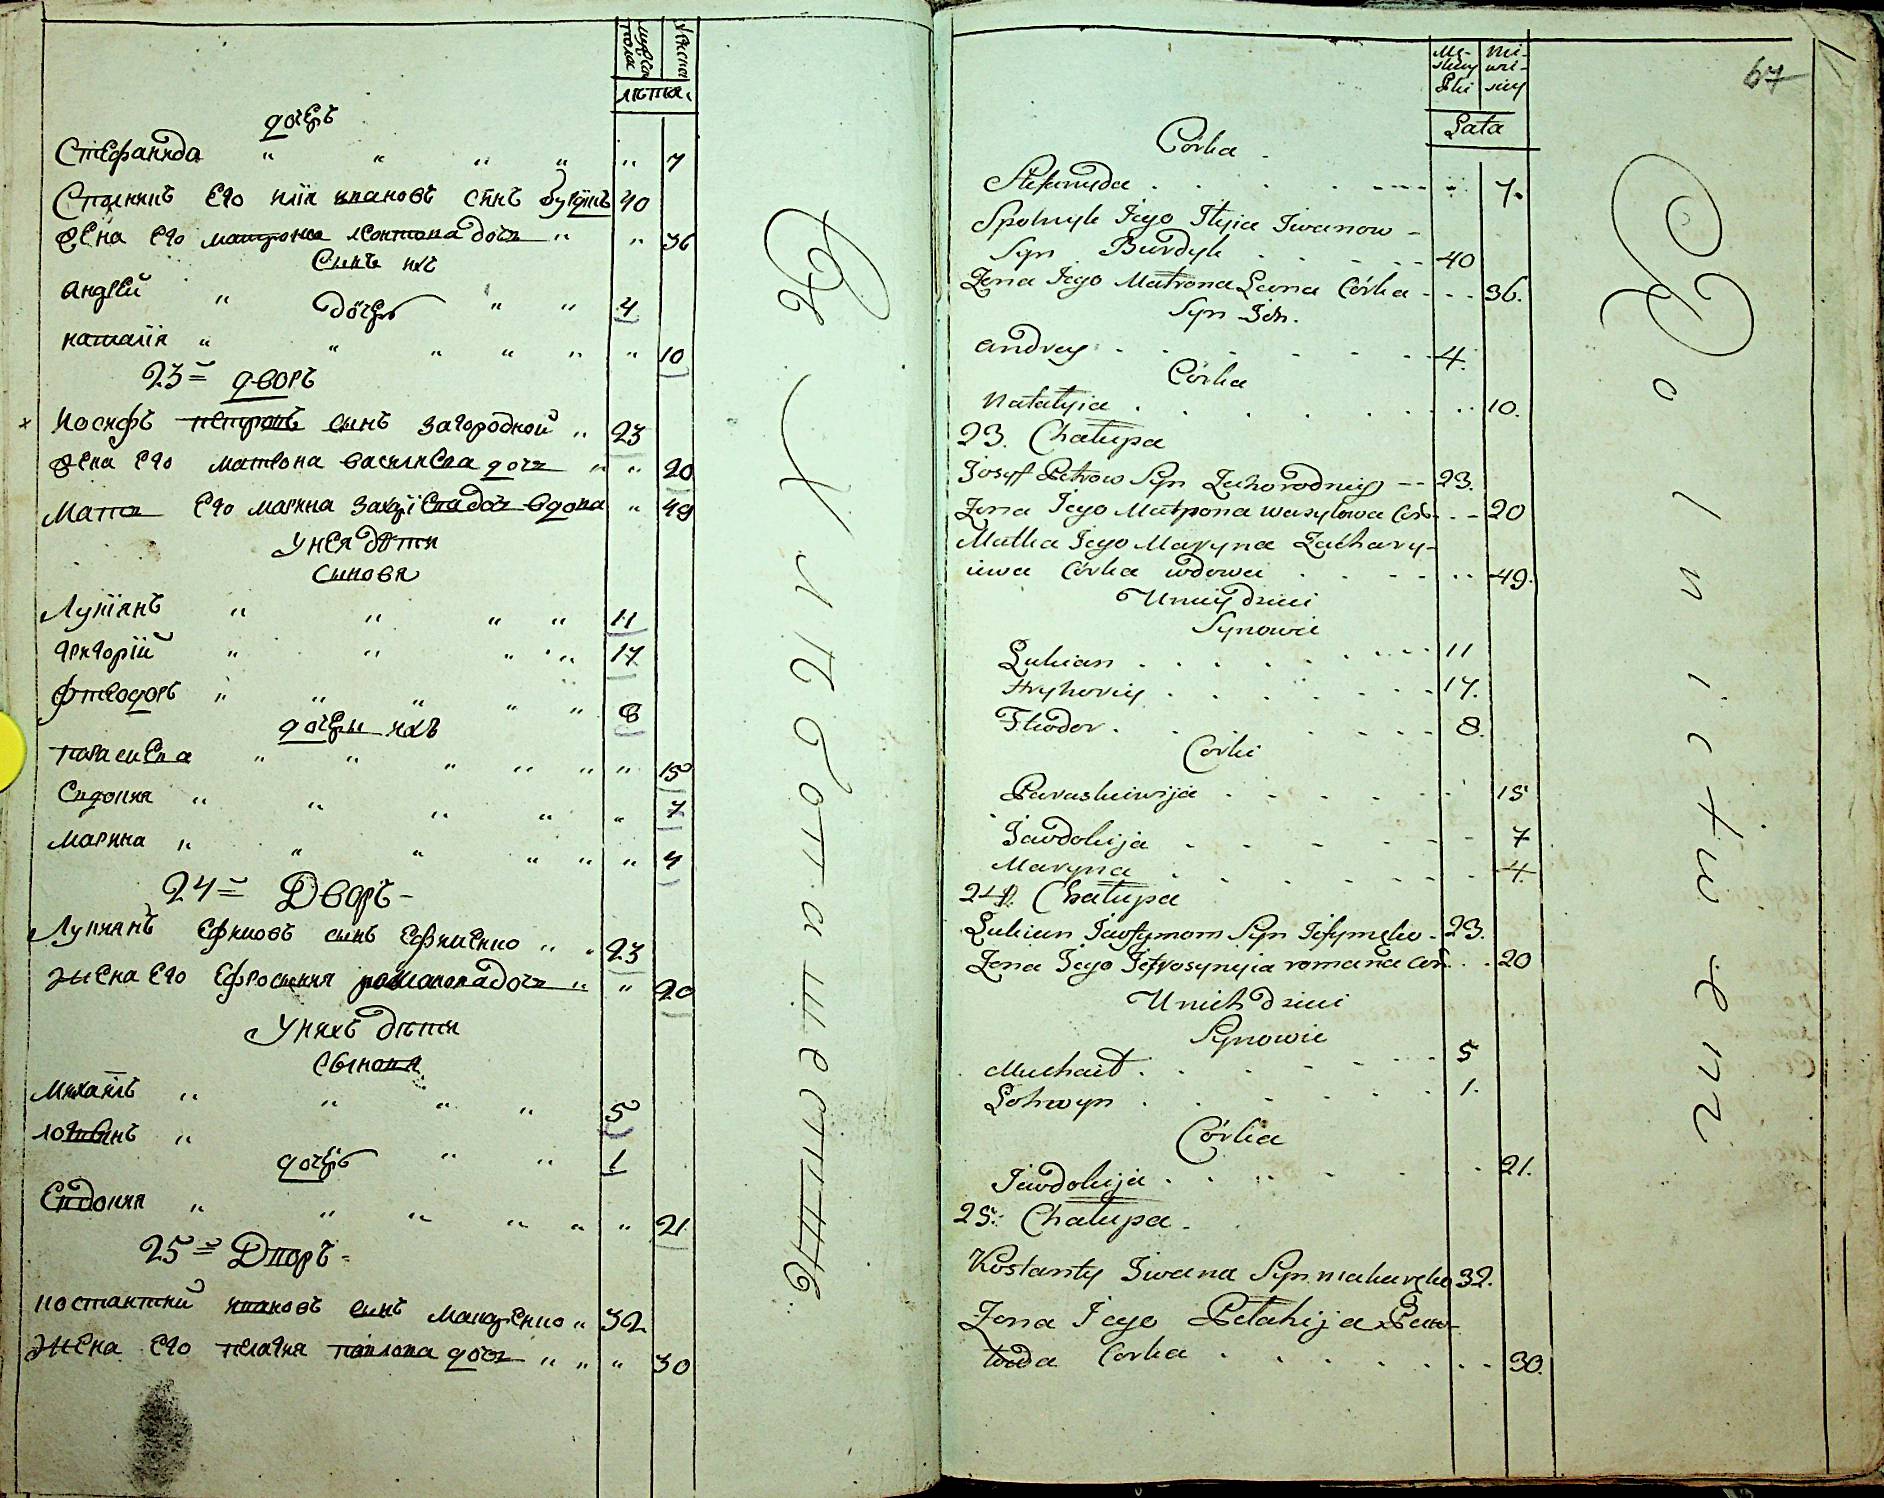 мужеска пола
женска
лѣта
дочерь
Стефанида " " " " " 7
его илія ивановъ синъ 40
жена его леонтова дочь " " 36
Синъ ихъ
андрей " " " 4
дочерь
наталія " " " " " " 10
23 дворъ
Иосифъ петровъ синъ загородной " 23
жена его матрона василиева дочь " " 20
мать его марина захріева дочь вдова " 49
У нея дѣти
синовя
Лукіянъ " " " " 11
григорій " " " " 17
фтеодоръ " " " " " 8
дочери ихъ
параскева " " " " " " 15
Евдокия " " " " " 7
марина " " " " " " 4
24 Дворъ
Лукиянъ ефимовъ синъ Ефименко " " 23
жена его ефросиния романова дочь " " 20
У нихъ дѣти
сынови
Михаилъ " " " " 5
логвинъ " " " 1
дочерь
Евдокия " " " " " " 21
25 Дворъ
костантий ивановъ синъ макаренко " 32
жена его пелагия павлова дочь " " " 30
67
Męskiey Płci
Niewieściey
Lata
Córka
Stefanyda 7.
Spolnyk Jego Ilyia Iwanow
Syn Burdyk 40
Zona Jego Matrona Leona Córka 36.
Syn Ich.
andrey 4.
Córka
Natalyia 10.
23. Chałupa
Josyff Petrow Syn Zahorodniy 23.
Zona Jego Matrona wasylowa Cór. 20
Matka Jego Maryna Zachary-
iewa Córka wdowa 49.
U niey dzieci
Synowie
Lukian 11
Hryhoriy 17.
Fteodor 8.
Corki
Paraskiewija 15
Jawdokija 7
Maryna 4.
24. Chałupa
Lukian Jawfymow Syn Jefymęko 23.
Zona Jego Jefrosynyia romana cór. 20
U nich dzieci
Synowie
Muchaił 5
Lohwyn 1.
Córka
Jawdokija 21.
25. Chałupa
Kostanty Iwana Syn makaręko 32.
Zona Jego Pelahija Paw-
łowa Corka 30.